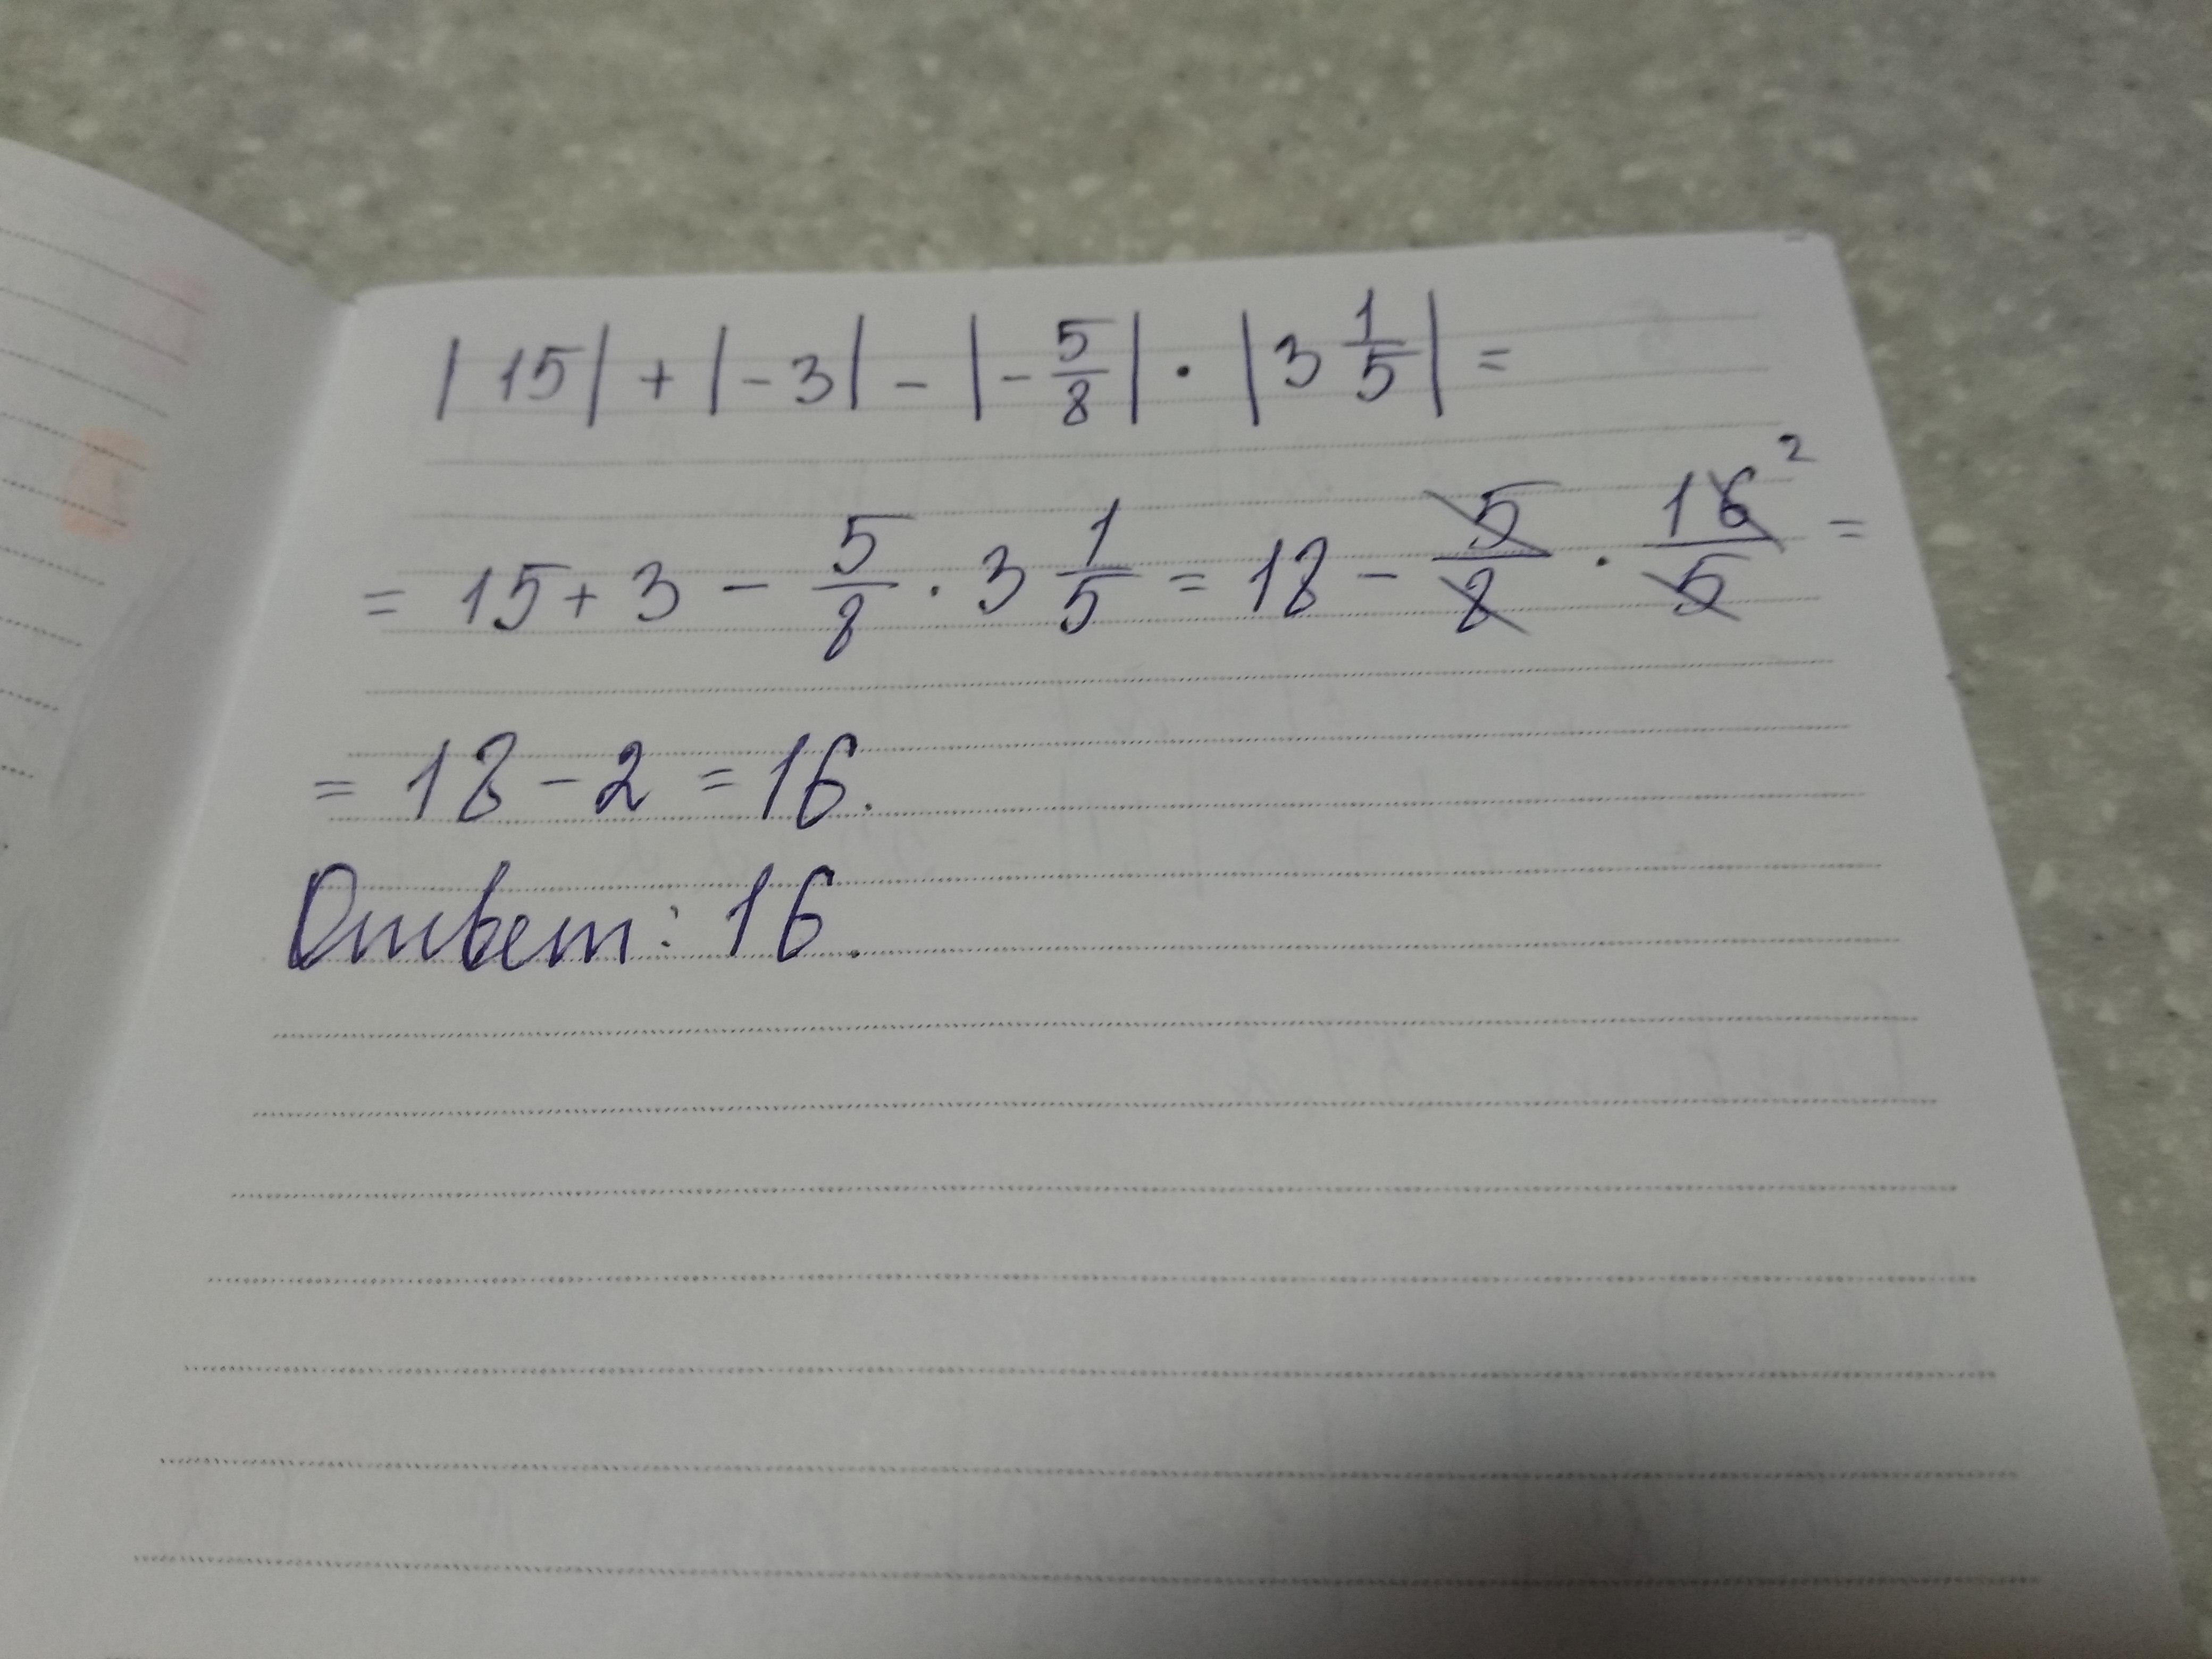 |15| + |-3| - |-5/8| · |3 1/5| =
= 15 + 3 - 5/8 · 3 1/5 = 18 - 5/8 · 16/5 2 =
= 18 - 2 = 16.
Ответ: 16.